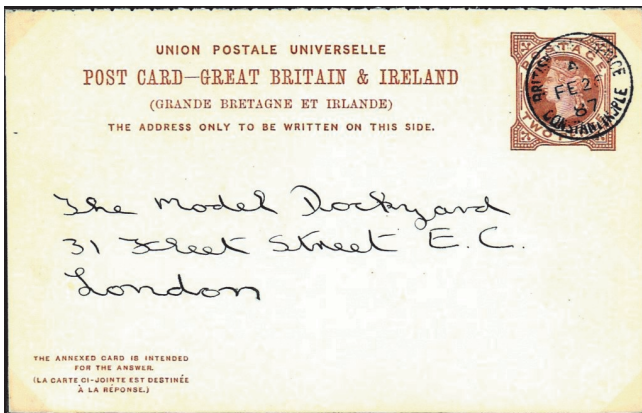 UNION POSTALE UNIVERSELLE
POST CARD—GREAT BRITAIN & IRELAND
(GRANDE BRETAGNE ET IRLANDE)
THE ADDRESS ONLY TO BE WRITTEN ON THIS SIDE.
POSTAGE
TWO
BRITISH
A
FE 2
87
CONSTANTINOPLE
The Model Dockyard
31 Fleet Street E.C.
London
THE ANNEXED CARD IS INTENDED
FOR THE ANSWER.
(LA CARTE CI-JOINTE EST DESTINÉE
À LA RÉPONSE.)